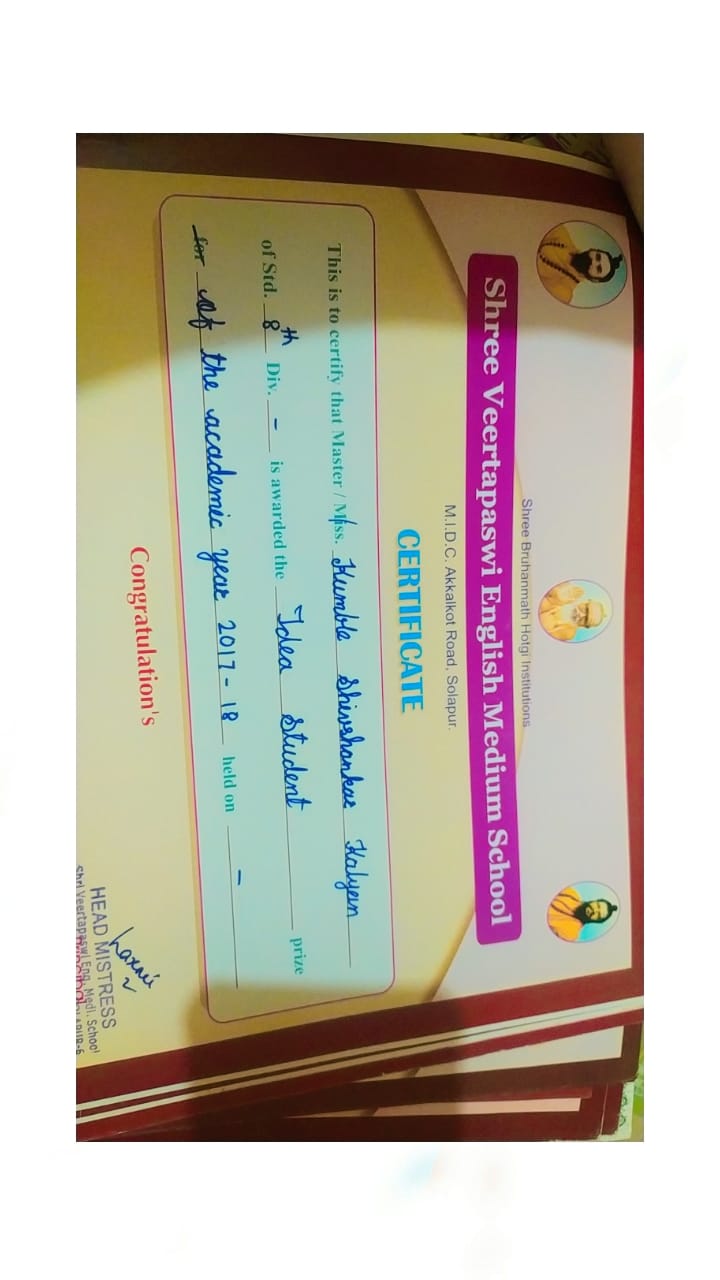 Shree Bruhanmath Hotgi Institutions
Shree Veertapaswi English Medium School
M.I.D.C. Akkalkot Road, Solapur.
CERTIFICATE
This is to certify that Master / Miss. Kumble Shivshankar Kalyan
of Std. 8th Div. - is awarded the Idea Student prize
for of the academic year 2017-18 held on -
Congratulation's
HEAD MISTRESS
Shri Veertapaswi Eng. Medi. School
Principal